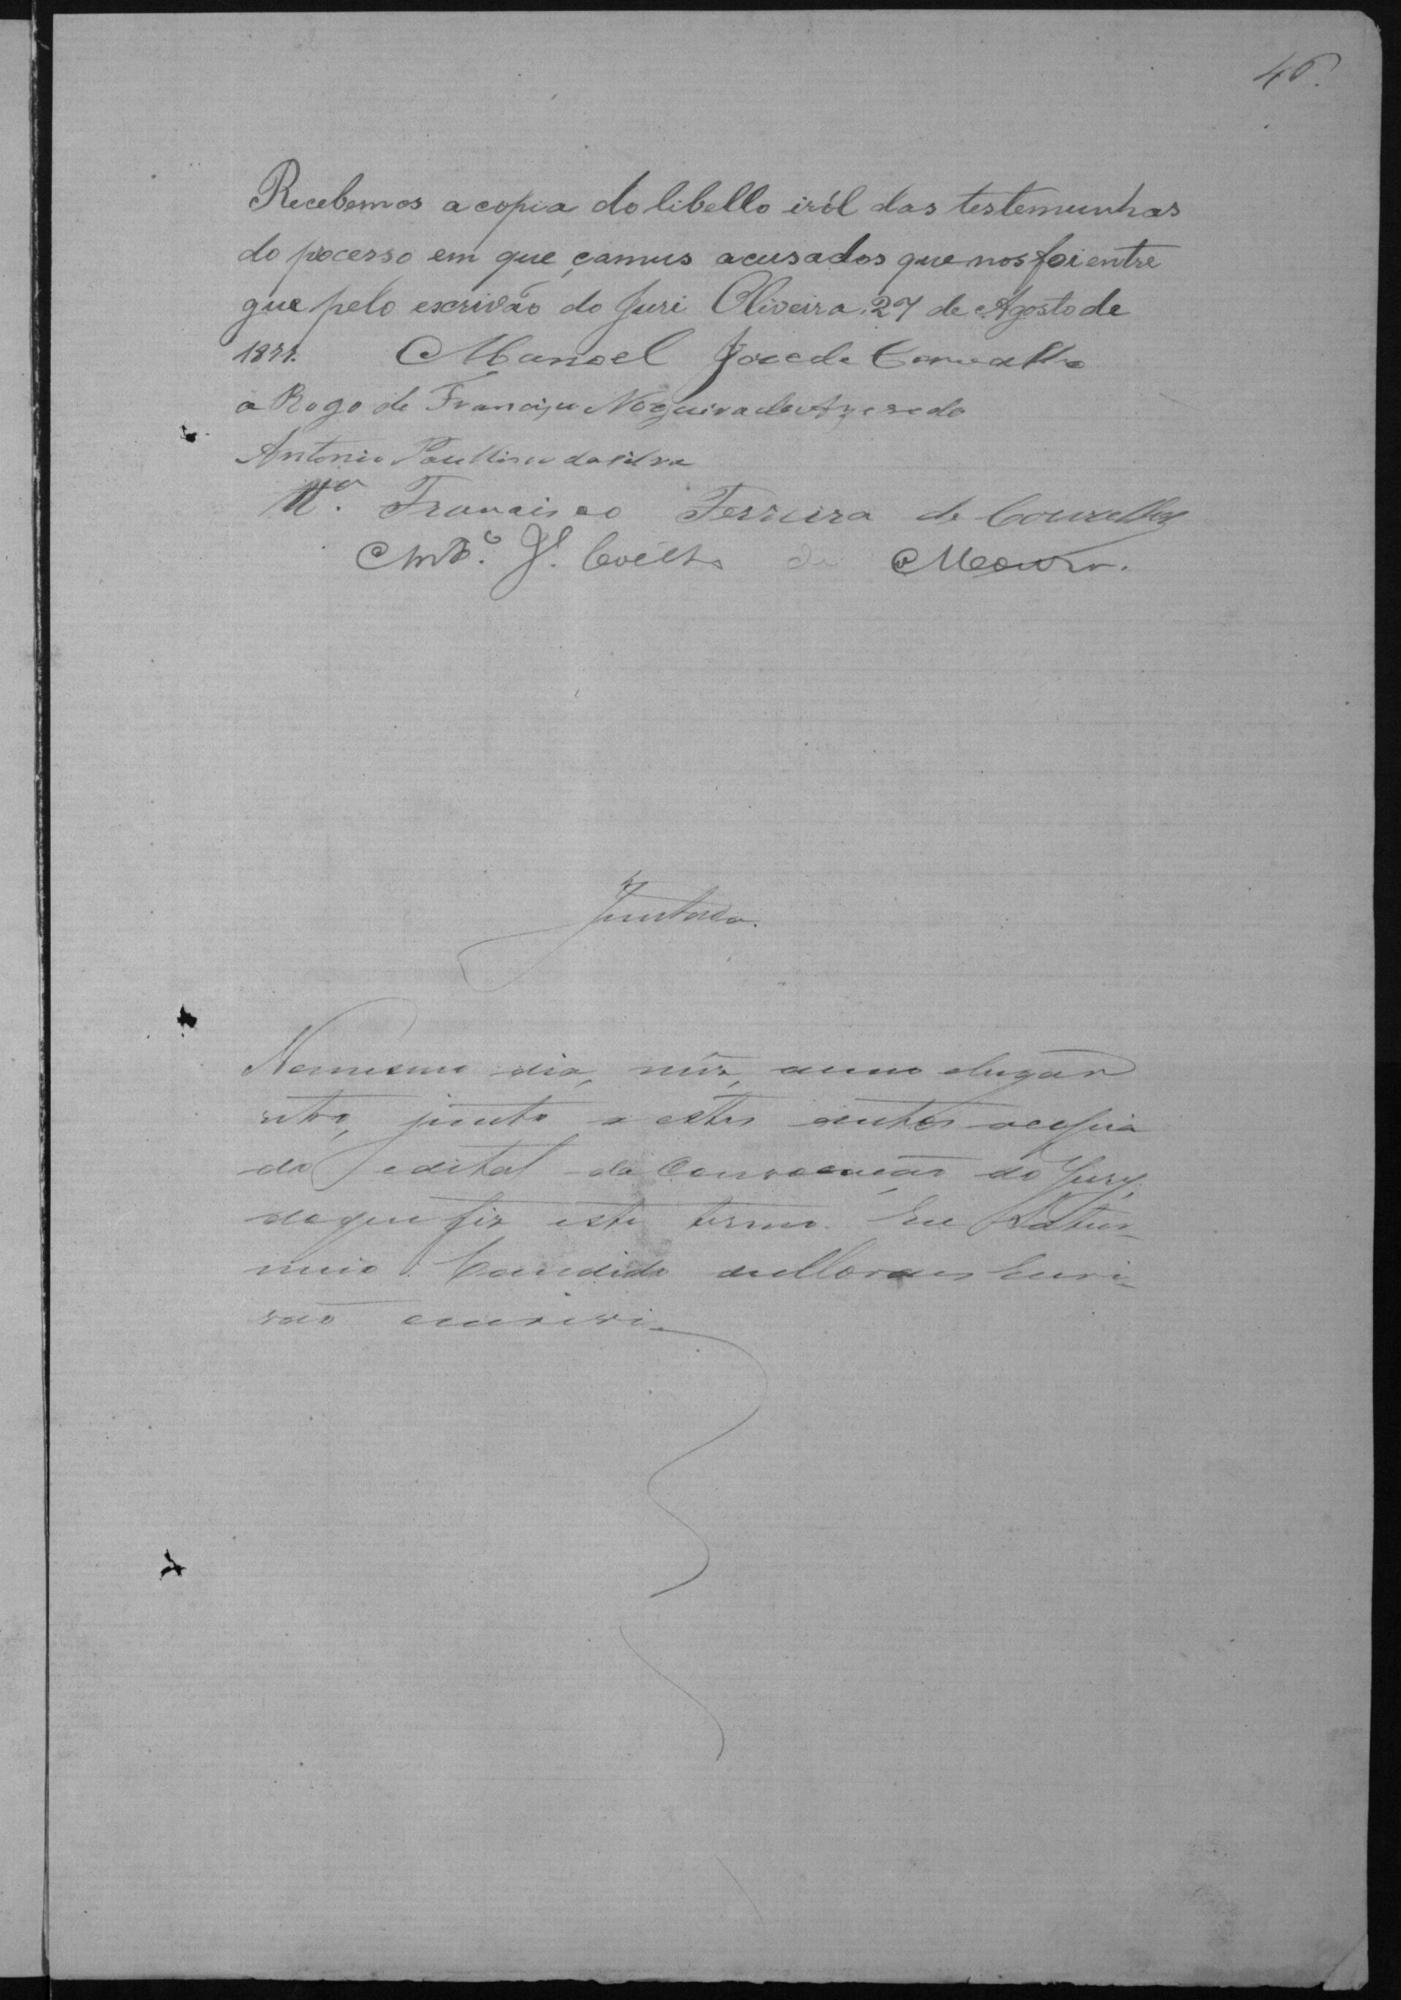 46.
Recebemos a copia do libello iról das testemunhas
do pocesso em que çamus acusados que nos foi entre
gue pelo escrivão do Juri Oliveira, 27 de Agosto de
Manoel Joze de Carvalho
a Rogo de Francisco Nogueira de Azeredo
Antonio Paullino da Silva
Francisco Ferreira de Carvalho
Ant.º J.e Coelho de Moura.
Juntada.
No mesmo dia, mez, anno e lugar
retro, junto a estes autos a copia
do edital da Convocação do Jury,
do que fiz este termo. Eu Satur-
nino Candido de Moraes Escri-
vão escrevi.